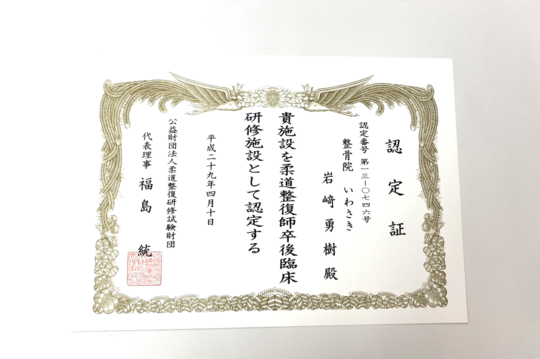 認定証
認定番号 第一三-〇七四六号
整骨院 いわさき
岩﨑勇樹殿
貴施設を柔道整復師卒後臨床
研修施設として認定する
平成二十九年四月十日
公益財団法人柔道整復研修試験財団
代表理事 福島 統